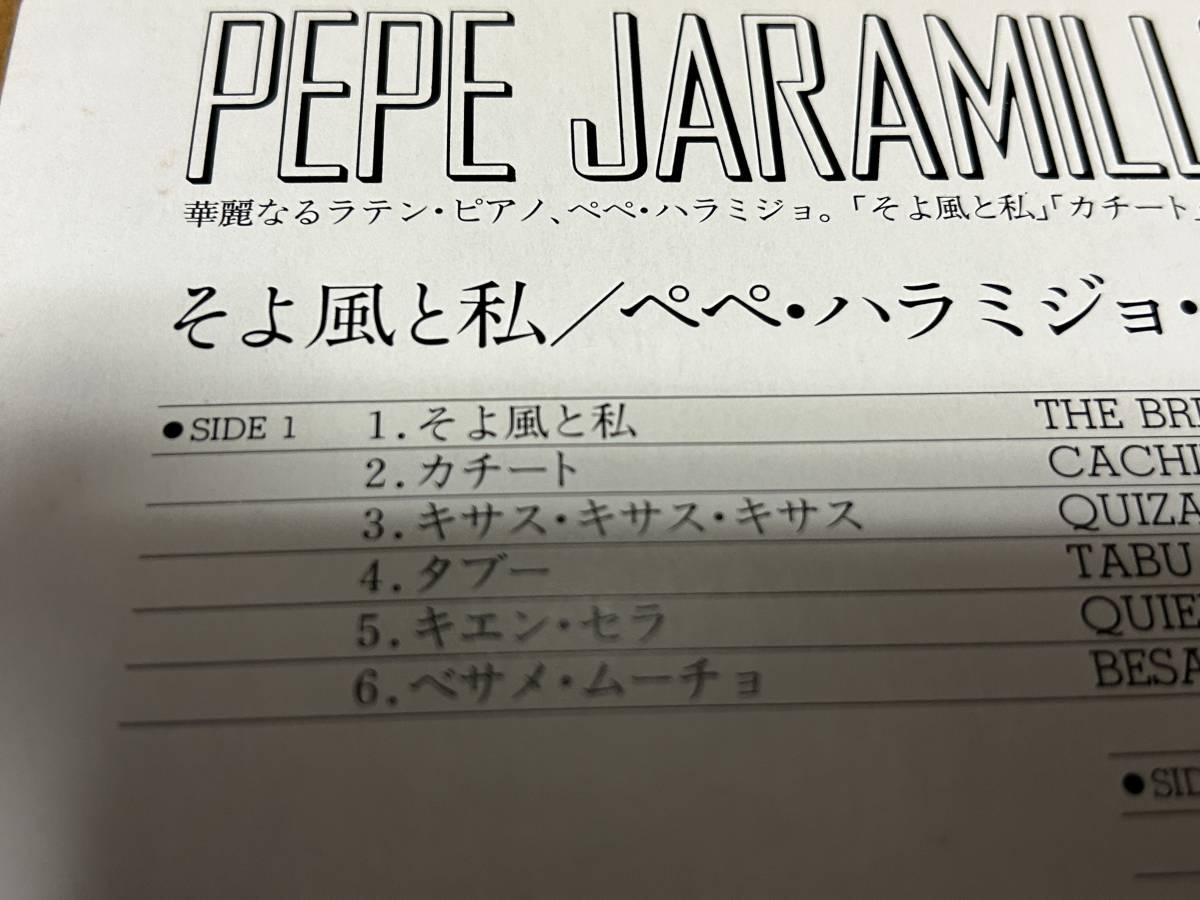 PEPE JARAMILL
華麗なるラテン・ピアノ、ペペ・ハラミジョ。「そよ風と私」「カチート」
そよ風と私/ペペ・ハラミジョ・
●SIDE 1 1.そよ風と私 THE BRE
2.カチート CACHI
3.キサス・キサス・キサス QUIZA
4.タブー TABU
5.キエン・セラ QUIE
6.ベサメ・ムーチョ BESA
●SID